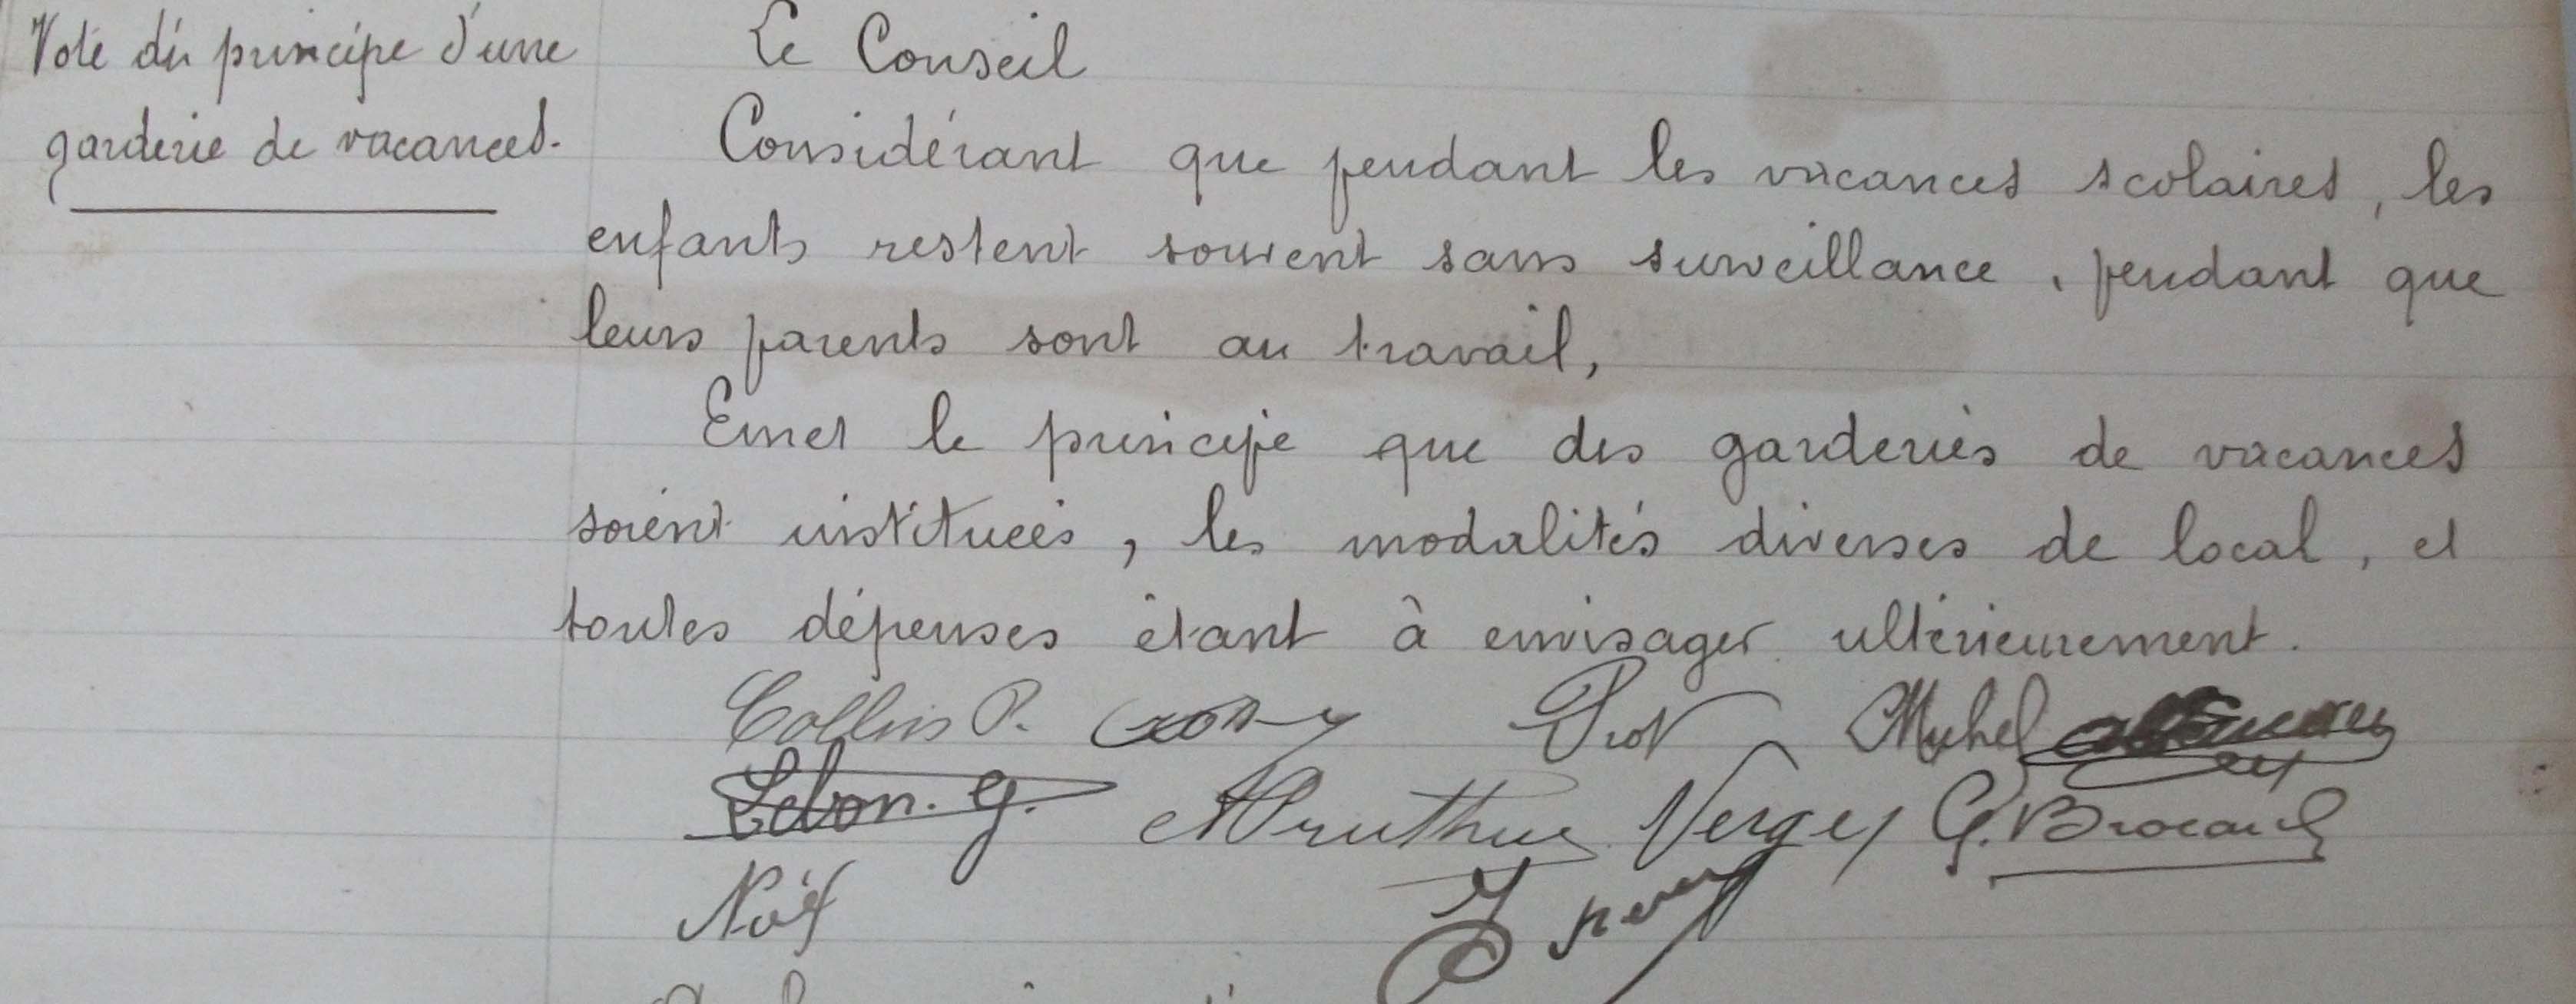 Vote du principe d'une
garderie de vacances.
Le Conseil
Considérant que pendant les vacances scolaires, les
enfants restent souvent sans surveillance, pendant que
leurs parents sont au travail,
Emet le principe que des garderies de vacances
soient instituées, les modalités diverses de local, et
toutes dépenses étant à envisager ultérieurement.
Collin P. Michel
Lebon. G. Verges G. Brocard